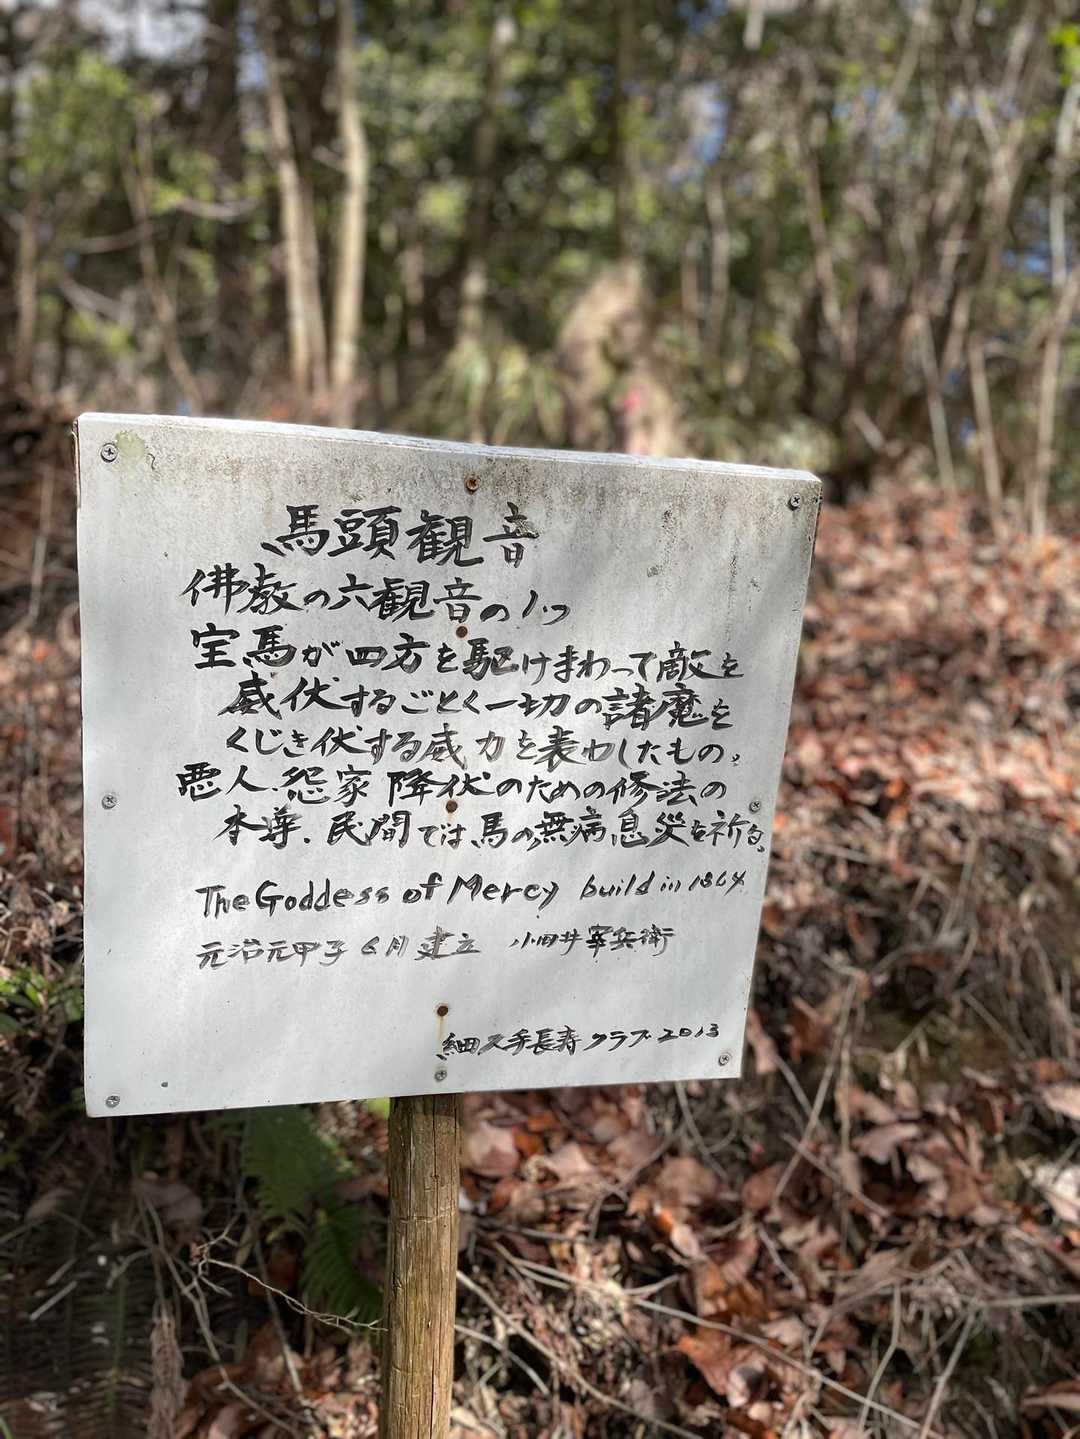 馬頭観音
佛教の六観音の1つ
宝馬が四方を駆けまわって敵を
威伏するごとく一切の諸魔を
くじき伏する威力を表わしたもの。
悪人、怨家降伏のための修法の
本尊、民間では、馬の無病息災を祈る。
The Goddess of Mercy build in 1864
元治元甲子6月建立 小田井宰兵衛
細久手長寿クラブ 2013